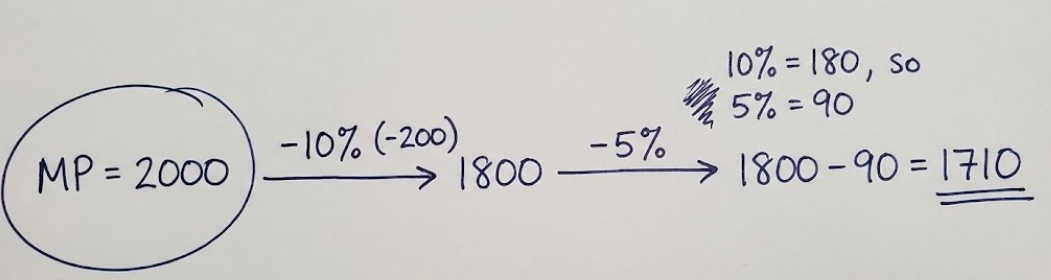 10% = 180, so
5% = 90
MP = 2000 -10% (-200) 1800 -5% 1800 - 90 = 1710